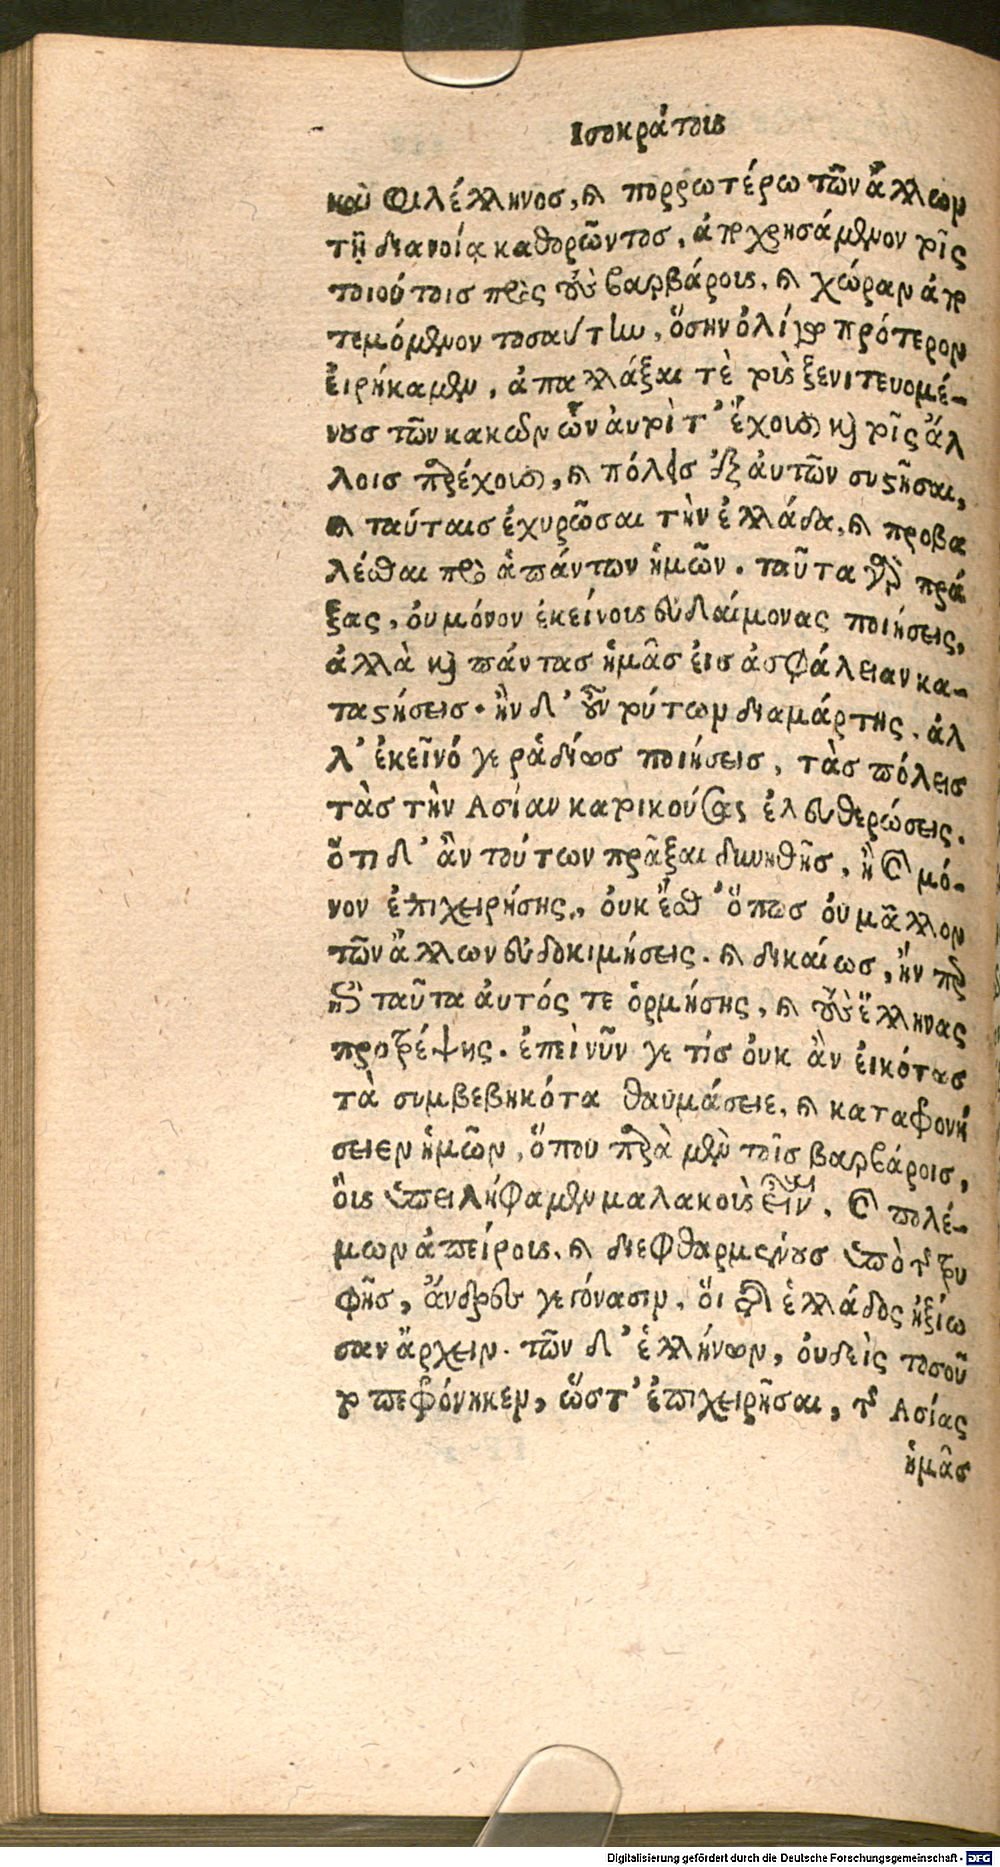 Ισοκράτους
καὶ Φιλέλληνοσ, καὶ πορρωτέρω τῶν ἄλλων
τῇ διανοίᾳ καθορῶντοσ, ἀποχρησάμενον τοῖς
τοιούτοισ πρὸς τοὺς βαρβάρους, καὶ χώραν ἀπο
τεμόμενον τοσαύτην, ὅσην ὀλίγῳ πρότερον
ἐιρήκαμεν, ἀπαλλάξαι τὲ τοὺς ξενιτευομέ-
νουσ τῶν κακῶν ὧν ἀυτοὶ τ’ ἔχουσι καὶ τοῖς ἄλ
λοισ παρέχουσι, καὶ πόλεισ ἐξ ἀυτῶν συστῆσαι,
καὶ ταύταισ ἐχυρῶσαι τὴν ἑλλάδα, καὶ προβα
λέσθαι πρὸ ἁπάντων ἡμῶν. ταῦτα γὰρ πρά
ξας, ὀυ μόνον ἐκείνους ἐυδαίμονας ποιήσεις,
ἀλλὰ καὶ πάντασ ἡμᾶσ ἐισ ἀσφάλειαν κα-
ταστήσεισ. ἢν δ’ οὖν τούτων διαμάρτης, ἀλ
λ’ ἐκεῖνό γε ῥαδίωσ ποιήσεισ, τὰσ πόλεισ
τὰσ τὴν Ασίαν κατοικούσας ἐλευθερώσεις.
ὅτι δ’ ἂν τούτων πρᾶξαι δυνηθῇσ, ἢ καὶ μό-
νον ἐπιχειρήσης, ὀυκ ἔσθ’ ὅπωσ ὀυ μᾶλλον
τῶν ἄλλων ἐυδοκιμήσεις. καὶ δικαίωσ, ἤν πρ
ὸς ταῦτα ἀυτός τε ὁρμήσης, καὶ τοὺς ἕλληνας
προτρέψης. ἐπεὶ νῦν γε τίσ ὀυκ ἂν ἐικότασ
τὰ συμβεβηκότα θαυμάσειε, καὶ καταφρονή
σειεν ἡμῶν, ὅπου παρὰ μὲν τοῖσ βαρβάροισ,
ὃυς ὑπειλήφαμεν μαλακοὺς εἶναι, καὶ πολέ-
μων ἀπείρους, καὶ διεφθαρμένουσ ὑπὸ τῆς τρυ
φῆσ, ἄνδρες γεγόνασιν, ὅι τῆς ἑλλάδος ἠξίω
σαν ἄρχειν. τῶν δ’ ἑλλήνων, ὀυδεὶς τοσοῦ
το πεφρόνηκεν, ὥστ’ ἐπιχειρῆσαι, τῆς Ασίας
ἡμᾶσ
Digitalisierung gefördert durch die Deutsche Forschungsgemeinschaft - DFG